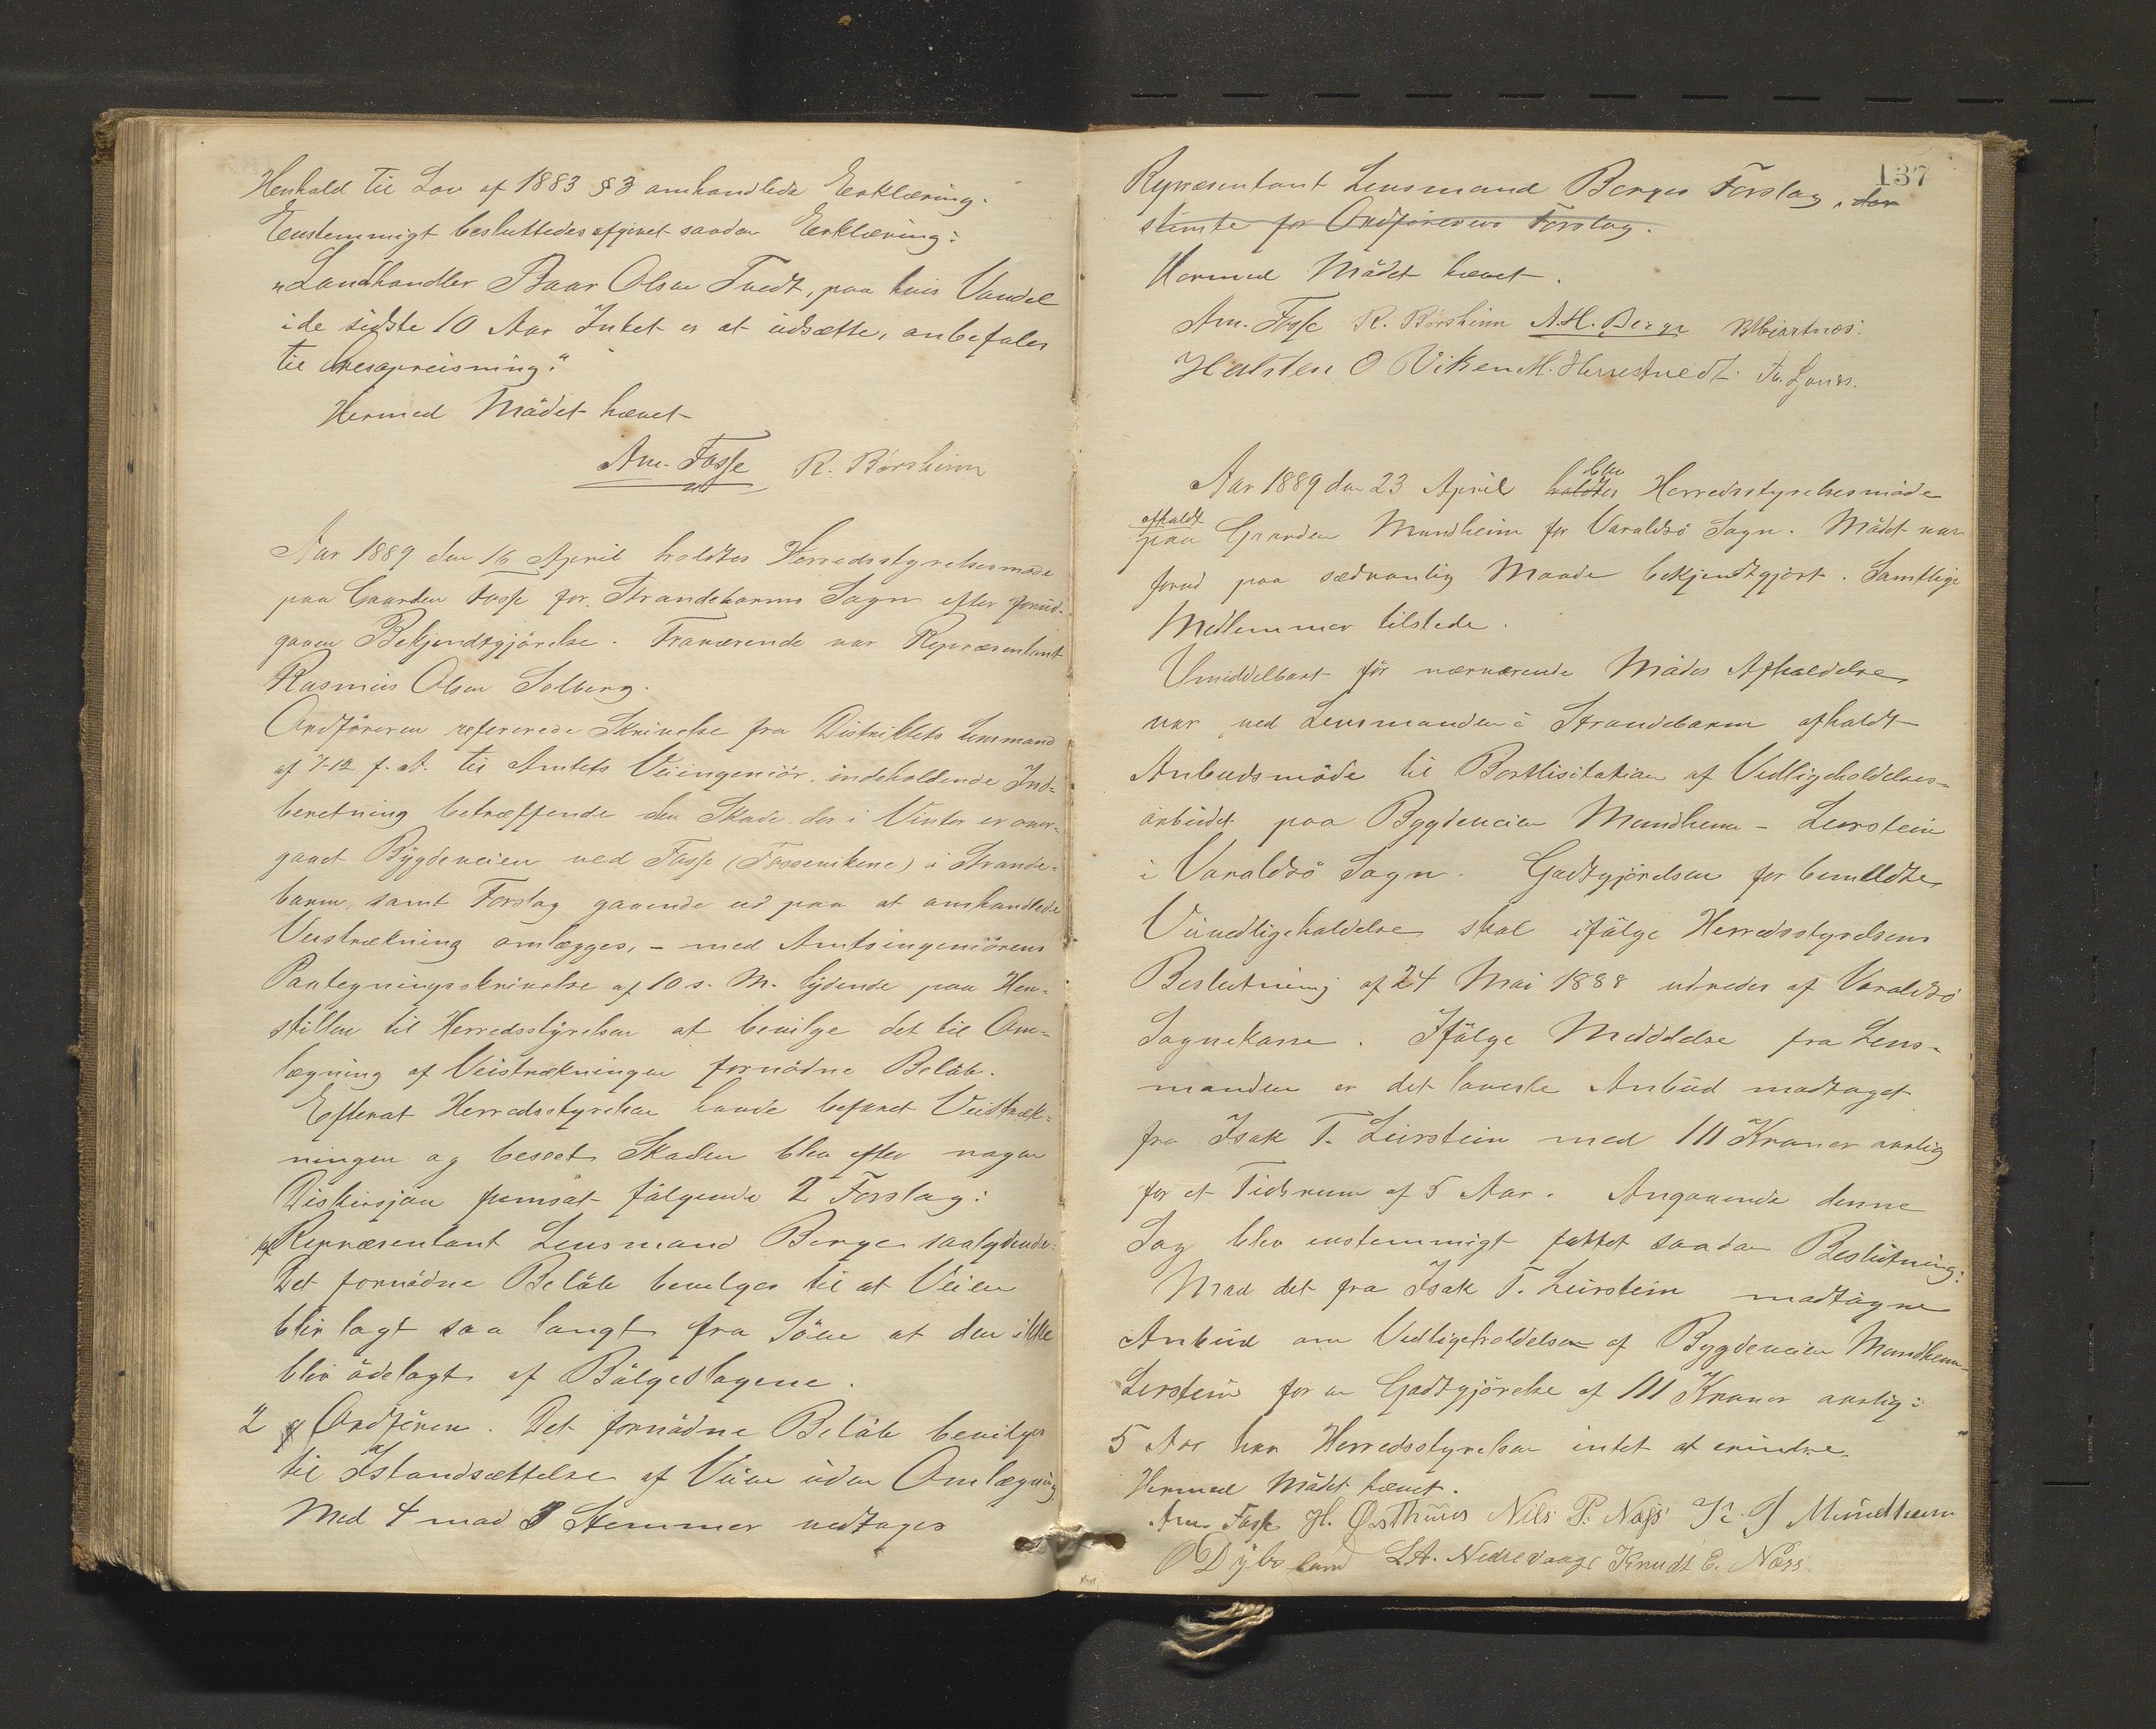 Henhold til Lov af 1883 § 3 omhandlede Erklæring.
Eenstemmigt besluttedes afgivet saadan Erklæring:
"Landhandler Baar Olsen Tvedt, paa hvis Vandel
i de sidste 10 Aar Intet er at udsætte, anbefales
til Skræpreisning."
Hermed Mödet hævet
Am. Fosse R. Börsheim
Aar 1889 den 16 April holdtes Herredsstyrelsesmöde
paa Gaarden Fosse for Strandebarms Sogn efter forud-
gaaen Bekjendtgjörelse. Fraværende var Repræsentant
Rasmus Olsen Solberg.
Ordföreren refererede Skrivelse fra Distriktets Lensmand
af 7-12 f. A. til Amtets Veiingeniör indeholdende Ind-
beretning betræffende den Skade der i Vinter er over-
gaaet Bygdeveien ved Fosse (Fossevikene) i Strande-
barm, samt Forslag gaaende ud paa at omhandlede
Veistrækning omlægges, - med Amtsingeniörens
Paategningsskrivelse af 10 s. M. lydende paa Hen-
stillen til Herredsstyrelsen at bevilge det til Om-
lægning af Veistrækningen fornödne Belöb.
Efterat Herredsstyrelsen havde befaret Veistræk-
ningen og beseet Skaden blev efter nogen
Diskusjon fremsat fölgende 2 Forslag:
af Repræsentant Lensmand Berge saalydende:
Det fornödne Belöb bevilges til at Veien
blir lagt saa langt fra Söen at den ikke
blir ödelagt af Bölgeslagene.
2 af Ordfören. Det fornödne Belöb bevilges
til Istandsættelse af Veien uden Omlægning
Med 4 mod 3 Stemmer vedtages
137
Repræsentant Lensmand Berges Forslag, der
stemte for Ordförerens Forslag.
Hermed Mödet hævet.
Am. Fosse R. Börsheim A.H. Berge
Halsten O Viken M. Herrestvedt
Aar 1889 den 23 April holdtes blev Herredsstyrelsesmöde
afholdt
paa Gaarden Mundheim for Varaldsö Sogn. Mödet var
forud paa sædvanlig Maade bekjendtgjort. Samtlige
Medlemmer tilstede.
Umiddelbart för nærværende Mödes Afholdelse
var ved Lensmanden i Strandebarm afholdt
Anbudsmöde til Bortlisitation af Vedligeholdelses-
arbeidet paa Bygdeveien Mundheim - Leirstein
i Varaldsö Sogn. Godtgjörelsen for bemeldte
Veivedligeholdelse skal ifölge Herredsstyrelsens
Beslutning af 24 Mai 1888 udredes af Varaldsö
Sognekasse. Ifölge Meddelelse fra Lens-
manden er det laveste Anbud modtaget
fra Isak T. Leirstein med 111 Kroner aarlig
for et Tidsrum af 5 Aar. Angaaende denne
Sag blev enstemmigt fattet saadan Beslutning:
Mod det fra Isak T. Leirstein modtagne
Anbud om Vedligeholdelsen af Bygdeveien Mundheim-
Leirstein for en Godtgjörelse af 111 Kroner aarlig i
5 Aar har Herredsstyrelsen intet at erindre.
Hermed Mödet hævet.
Am Fosse H. Östhuus Nils P. Næss J. Mundheim
O Dybsland L A. Nedrevaage Knudt E. Næss.